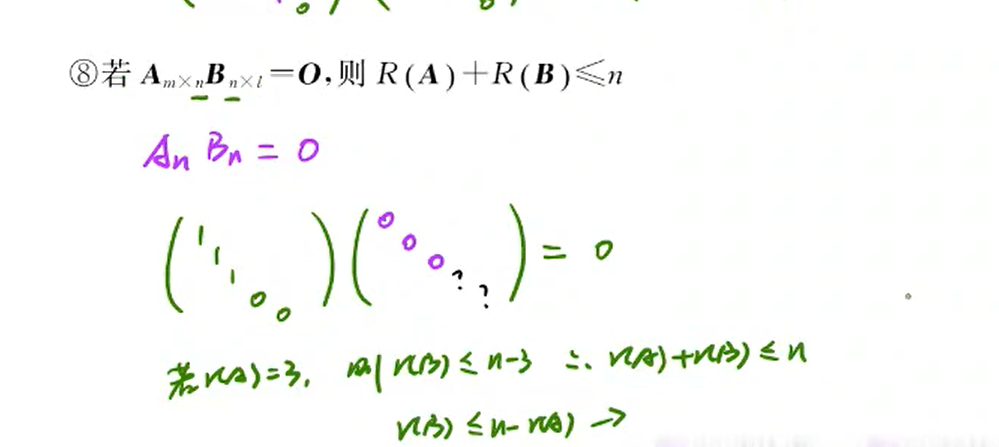 ⑧若 A_{m×n}B_{n×l}=O,则 R(A)+R(B)≤n
An Bn = 0
( 1 1 1 0 0 ) ( 0 0 0 ? ? ) = 0
若 r(A)=3, 则 r(B) ≤ n-3 ∴ r(A)+r(B) ≤ n
r(B) ≤ n-r(A) →